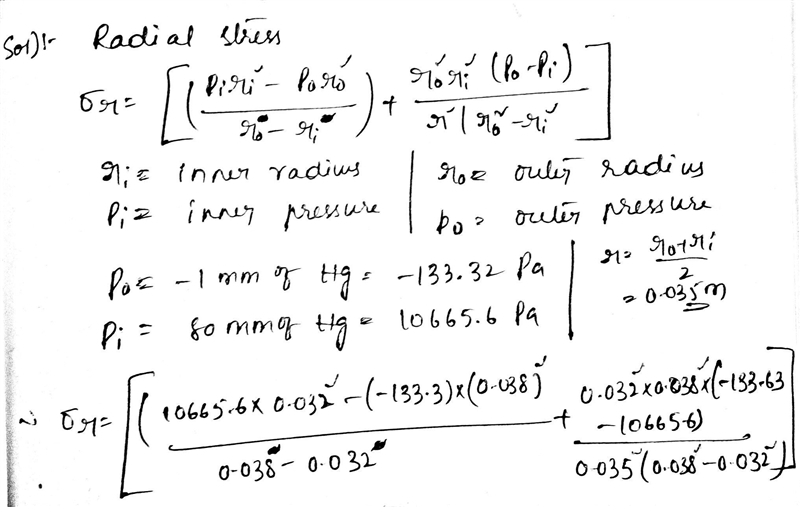 Sol):- Radial stress
σr = [(Piri² - Poro² / ro² - ri²) + ro²ri² (Po-Pi) / r² (ro² - ri²)]
ri = inner radius | ro = outer radius
Pi = inner pressure | po = outer pressure
Po = -1 mm of Hg = -133.32 Pa | r = ro+ri / 2
Pi = 80 mm of Hg = 10665.6 Pa | = 0.035 m
∴ σr = [(10665.6 x 0.032² - (-133.3) x (0.038)² / 0.038² - 0.032²) + 0.032² x 0.038² x (-133.63 - 10665.6) / 0.035² (0.038² - 0.032²)]